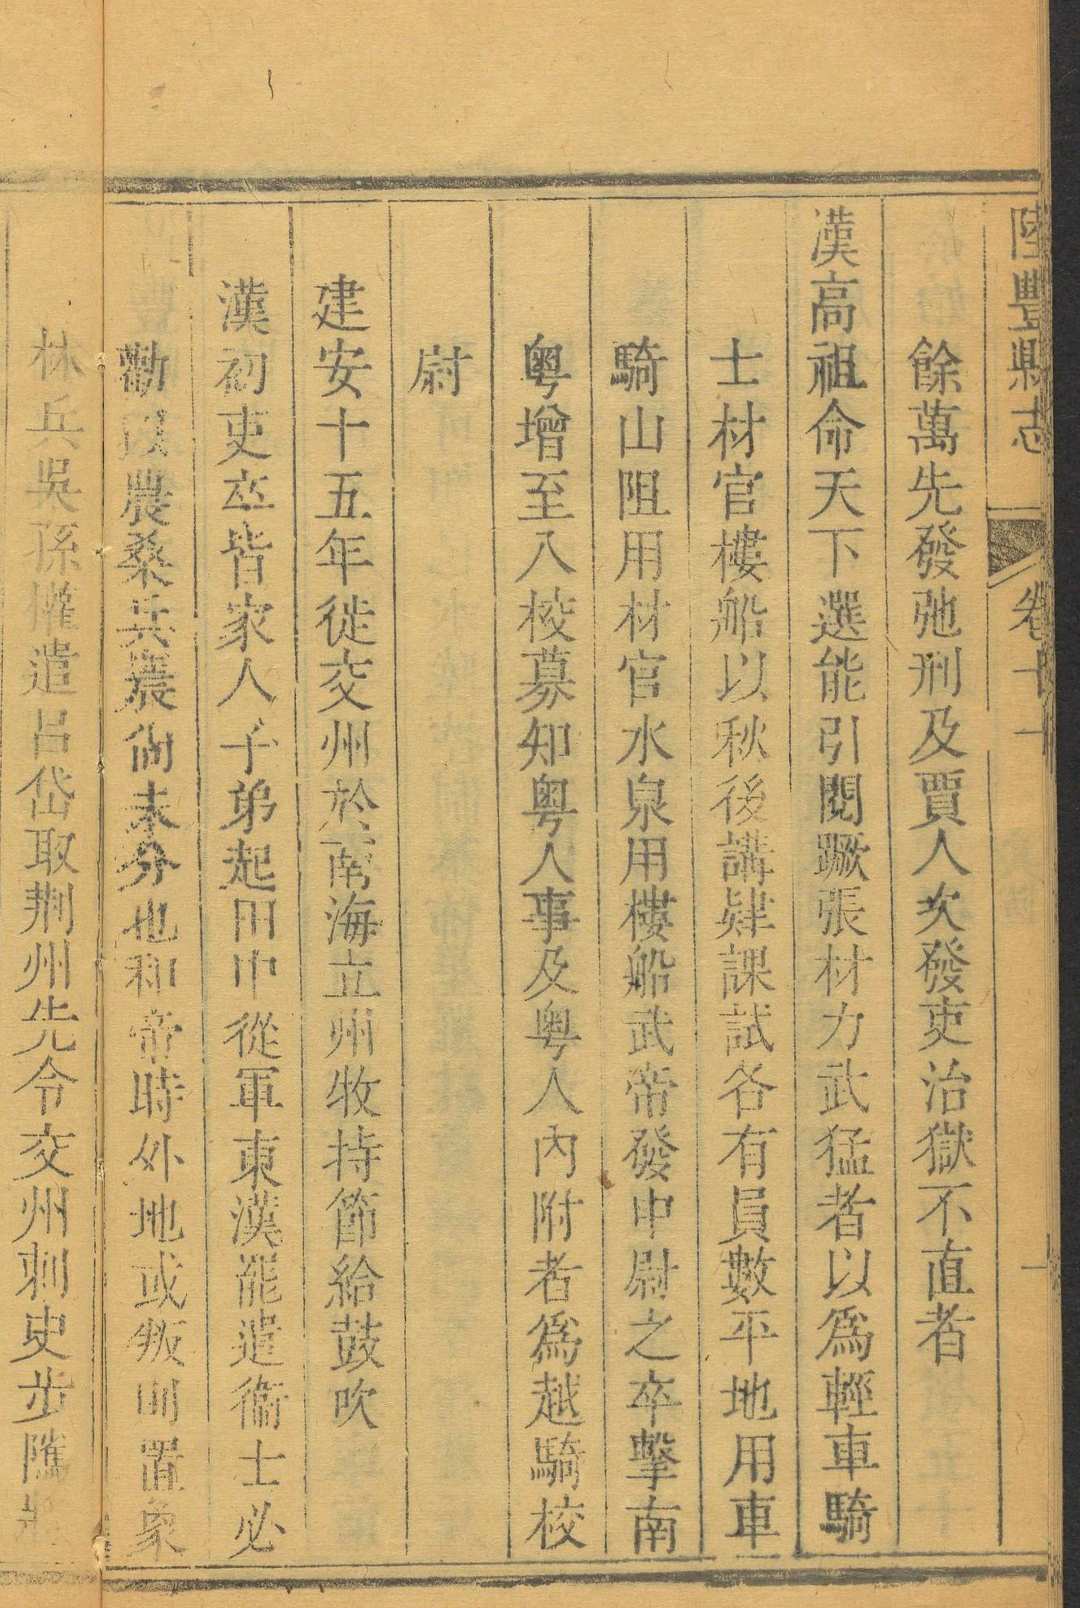 陸豐縣志 卷十一 一
餘萬先發弛刑及賈人次發吏治獄不直者
漢高祖命天下選能引關蹶張材力武猛者以爲輕車騎
士材官樓船以秋後講肄課試各有員數平地用車
騎山阻用材官水泉用樓船武帝發中尉之卒擊南
粵增至八校募知粵人事及粵人內附者爲越騎校
尉
建安十五年徙交州於南海立州牧持節給鼓吹
漢初吏卒皆家人子弟起田中從軍東漢罷遣衞士必
勸以農桑兵農尙未分也和帝時外地或叛則置象
林兵吳孫權遣呂岱取荆州先令交州刺史步隲